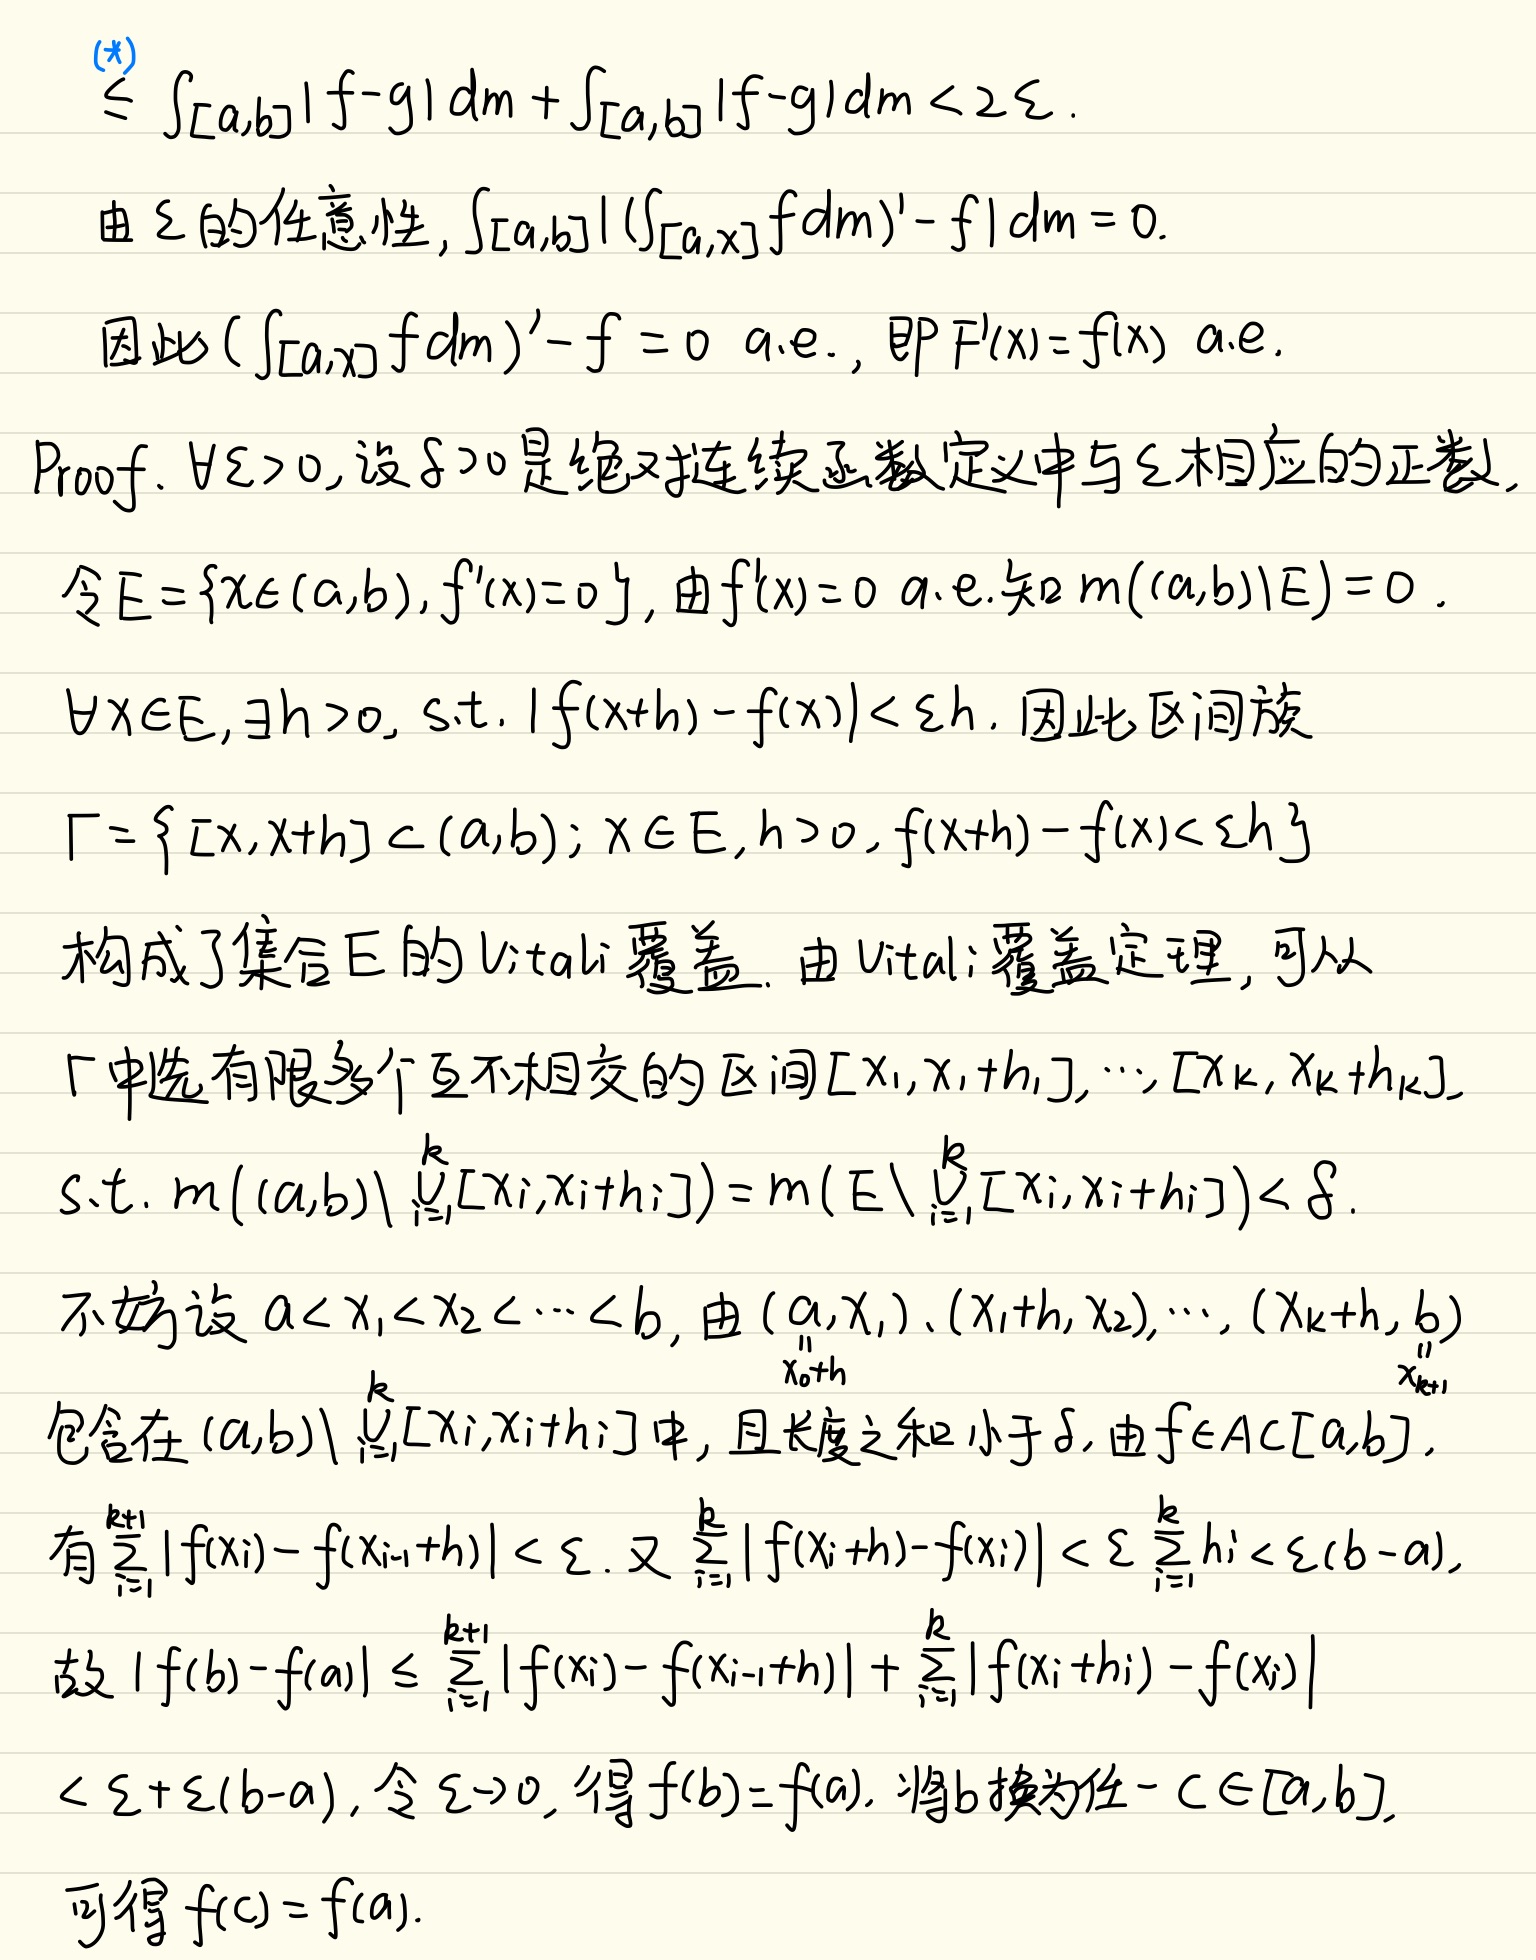 (*)
≤ ∫[a,b] |f-g| dm + ∫[a,b] |f-g| dm < 2ε.
由 ε 的任意性, ∫[a,b] |(∫[a,x] f dm)' - f| dm = 0.
因此 (∫[a,x] f dm)' - f = 0 a.e., 即 F'(x) = f(x) a.e.
Proof. ∀ε>0, 设 δ>0 是绝对连续函数定义中与 ε 相应的正数,
令 E = {x∈(a,b), f'(x)=0}, 由 f'(x)=0 a.e. 知 m((a,b)\E) = 0.
∀x∈E, ∃h>0, s.t. |f(x+h) - f(x)| < εh. 因此区间族
Γ = {[x, x+h] ⊂ (a,b); x∈E, h>0, f(x+h) - f(x) < εh}
构成了集合 E 的 Vitali 覆盖. 由 Vitali 覆盖定理, 可以
Γ 中选有限多个互不相交的区间 [x₁, x₁+h₁], ⋯, [xₖ, xₖ+hₖ],
s.t. m((a,b)\ ∪_{i=1}^{k} [xᵢ, xᵢ+hᵢ]) = m(E\ ∪_{i=1}^{k} [xᵢ, xᵢ+hᵢ]) < δ.
不妨设 a < x₁ < x₂ < ⋯ < b, 由 (a, x₁)、(x₁+h, x₂), ⋯, (xₖ+h, b)
= x₀+h = xₖ₊₁
包含在 (a,b)\ ∪_{i=1}^{k} [xᵢ, xᵢ+hᵢ] 中, 且长度之和小于 δ, 由 f∈AC[a,b],
有 ∑_{i=1}^{k+1} |f(xᵢ) - f(xᵢ₋₁+h)| < ε. 又 ∑_{i=1}^{k} |f(xᵢ+h) - f(xᵢ)| < ε ∑_{i=1}^{k} hᵢ < ε(b-a),
故 |f(b) - f(a)| ≤ ∑_{i=1}^{k+1} |f(xᵢ) - f(xᵢ₋₁+h)| + ∑_{i=1}^{k} |f(xᵢ+hᵢ) - f(xᵢ)|
< ε + ε(b-a), 令 ε→0, 得 f(b) = f(a). 将 b 换为任一 c∈[a,b],
可得 f(c) = f(a).